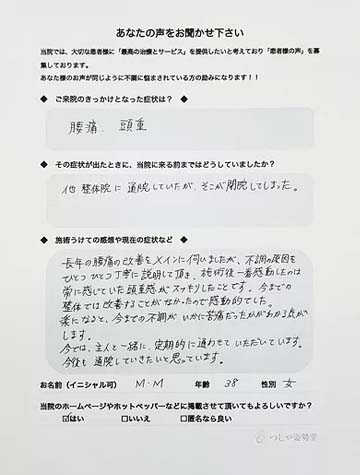 あなたの声をお聞かせ下さい
当院では、大切な患者様に「最高の治療とサービス」を提供したいと考えており「患者様の声」を募
集しております。
あなた様のお声が同じように不調に悩まされている方の励みになります！！
◆ ご来院のきっかけとなった症状は？ ◆
腰痛、頭重
◆ その症状が出たときに、当院に来る前まではどうしていましたか？
他 整体院に 通院していたが、そこが閉院してしまった。
◆ 施術うけての感想や現在の症状など ◆
長年の腰痛の改善をメインに伺いましたが、不調の原因を
ひとつひとつ丁寧に説明して頂き、施術後一番感動したのは
常に感じていた頭重感がスッキリしたことです。今までの
整体では改善することがなかったので感動的でした。
楽になると、今までの不調がいかに苦痛だったかがわかる気が
します。
今では、主人と一緒に、定期的に通わせていただいています。
今後も通院していきたいと思っています。
お名前（イニシャル可） M・M 年齢 38 性別 女
当院のホームページやホットペッパーなどに掲載させて頂いてもよろしいですか？
☑はい □いいえ □匿名なら良い